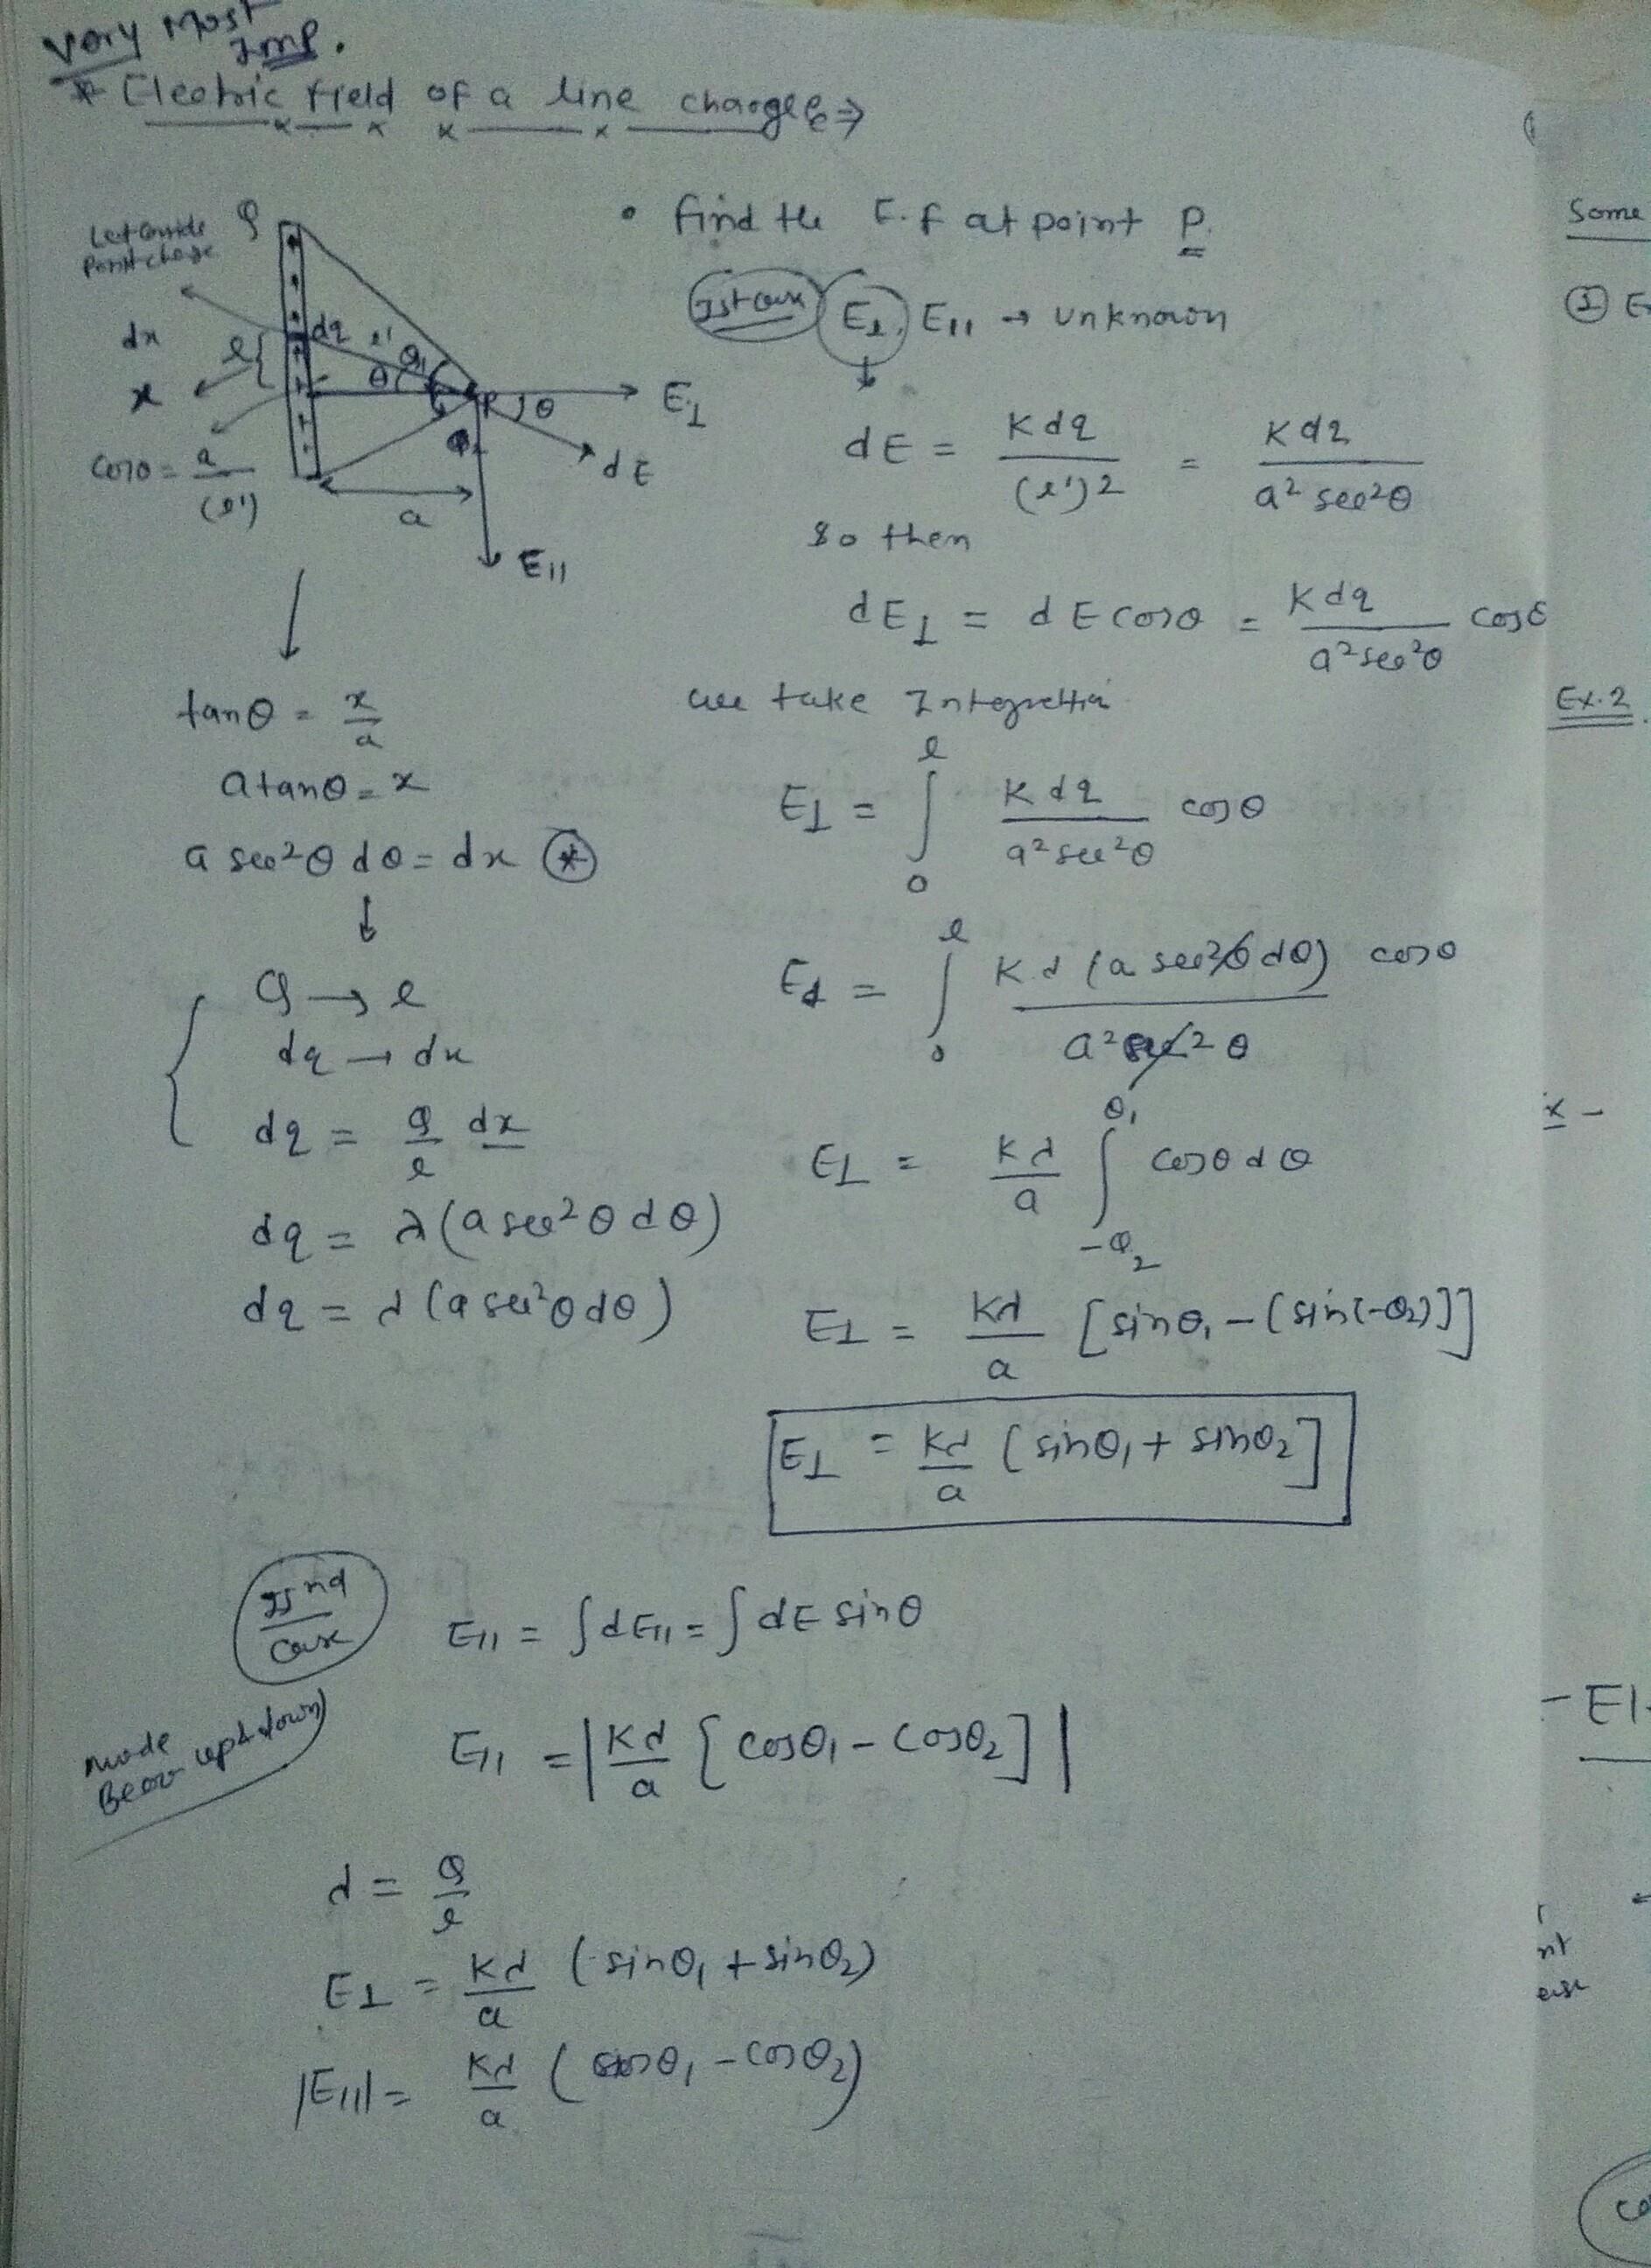 Very Most
Imp.
* Electric field of a line charge ⇒
• find the E.f at point P.
Ist case E⊥, E11 → unknown
Q
Let
Point charge
dx
x
l
dq
l'
θ1
θ
P
θ
E⊥
dE
cosθ = a/(l')
θ2
a
E11
dE = Kdq/(l')2 = Kdq/a2 sec2θ
so then
dE⊥ = dE cosθ = Kdq/a2sec2θ cosθ
we take
tanθ = x/a
a tanθ = x
a sec2θ dθ = dx (*)
Q → l
dq → dx
dq = Q/l dx
dq = λ(a sec2θ dθ)
dq = λ(a sec2θ dθ)
E⊥ = ∫0^l Kdq/a2sec2θ cosθ
E⊥ = ∫0^l K.λ (a sec2θ dθ)/a2 sec2θ cosθ
E⊥ = Kλ/a ∫-θ2^θ1 cosθ dθ
E⊥ = Kλ/a [sinθ1 - (sin(-θ2)]]
E⊥ = Kλ/a (sinθ1 + sinθ2]
IInd
case
E11 = ∫dE11 = ∫dE sinθ
up & down)
E11 = |Kλ/a [cosθ1 - cosθ2]|
λ = Q/l
E⊥ = Kλ/a (sinθ1 + sinθ2)
|E11| = Kλ/a (cosθ1 - cosθ2)
Some
① E
Ex.2.
x -
- E1
nt